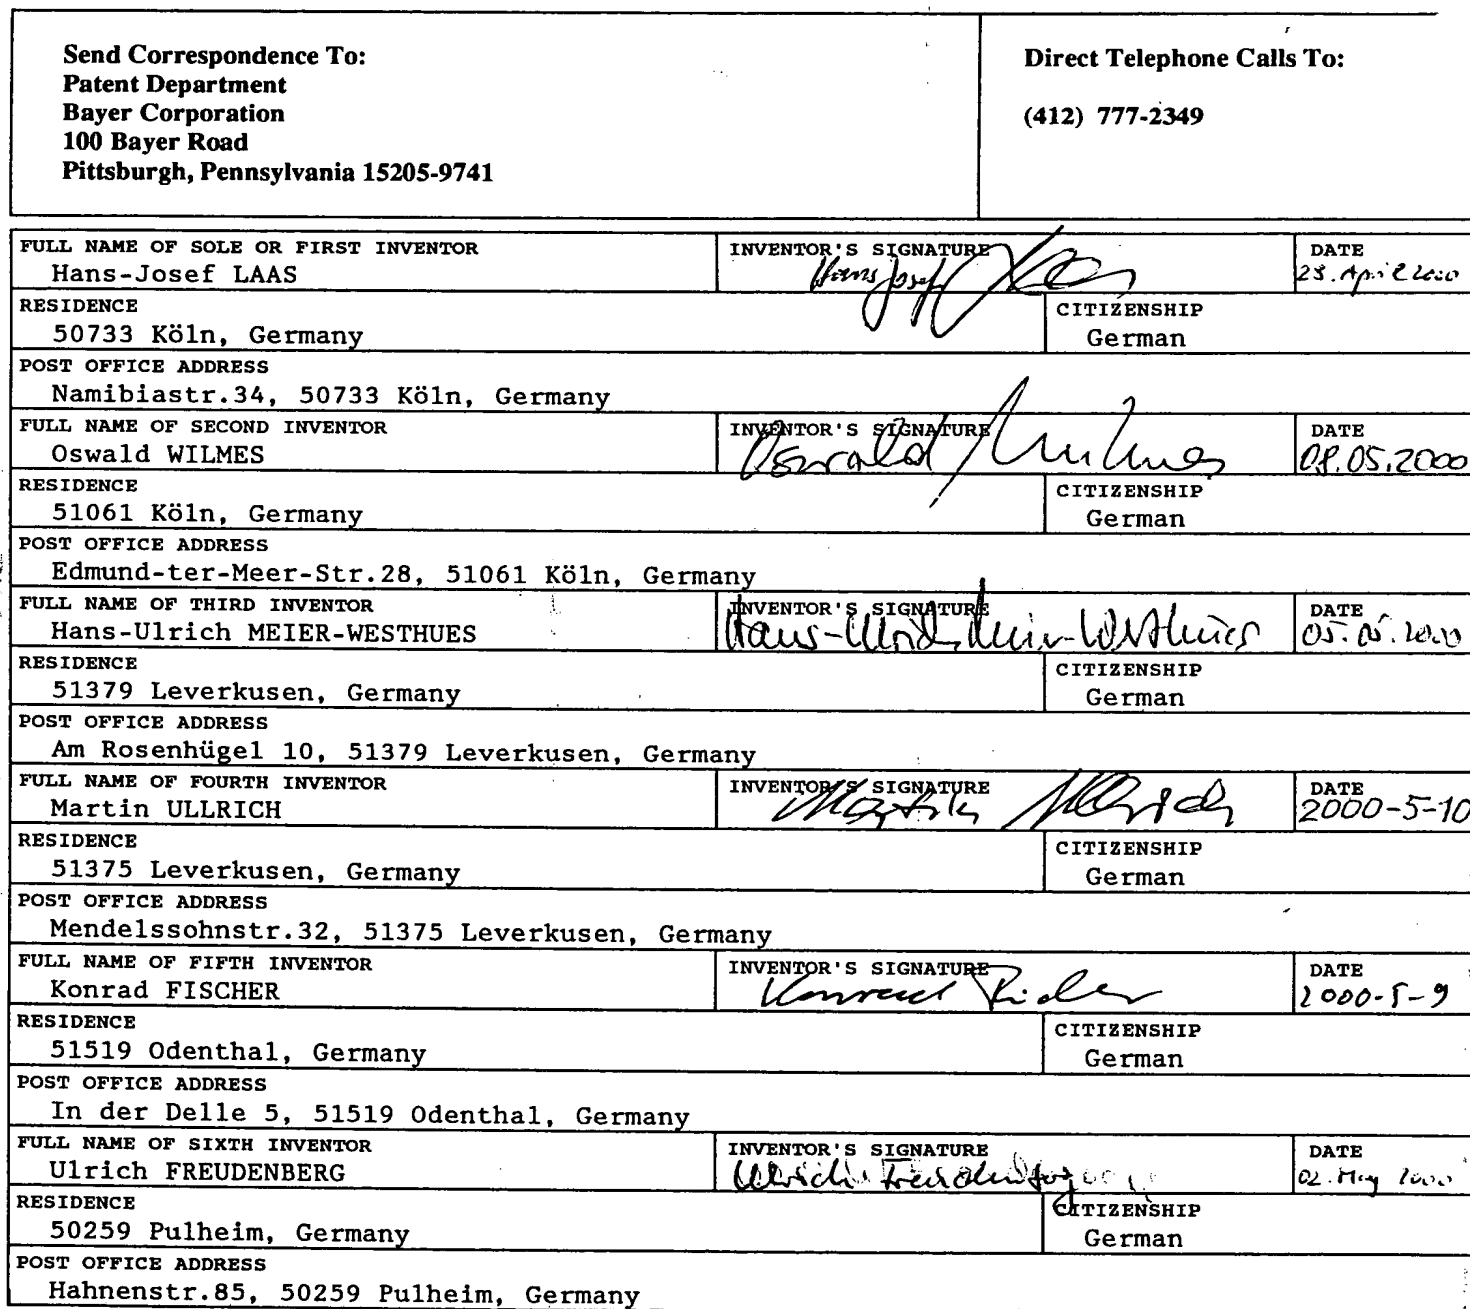 Send Correspondence To:
Patent Department
Bayer Corporation
100 Bayer Road
Pittsburgh, Pennsylvania 15205-9741
Direct Telephone Calls To:
(412) 777-2349
FULL NAME OF SOLE OR FIRST INVENTOR
Hans-Josef LAAS
INVENTOR'S SIGNATURE
Hans Josef Laas
DATE
28. April 2000
RESIDENCE
50733 Köln, Germany
CITIZENSHIP
German
POST OFFICE ADDRESS
Namibiastr.34, 50733 Köln, Germany
FULL NAME OF SECOND INVENTOR
Oswald WILMES
INVENTOR'S SIGNATURE
Oswald Wilmes
DATE
08.05.2000
RESIDENCE
51061 Köln, Germany
CITIZENSHIP
German
POST OFFICE ADDRESS
Edmund-ter-Meer-Str.28, 51061 Köln, Germany
FULL NAME OF THIRD INVENTOR
Hans-Ulrich MEIER-WESTHUES
INVENTOR'S SIGNATURE
Hans-Ulrich Meier-Westhues
DATE
05.05.2000
RESIDENCE
51379 Leverkusen, Germany
CITIZENSHIP
German
POST OFFICE ADDRESS
Am Rosenhügel 10, 51379 Leverkusen, Germany
FULL NAME OF FOURTH INVENTOR
Martin ULLRICH
INVENTOR'S SIGNATURE
Martin Ullrich
DATE
2000-5-10
RESIDENCE
51375 Leverkusen, Germany
CITIZENSHIP
German
POST OFFICE ADDRESS
Mendelssohnstr.32, 51375 Leverkusen, Germany
FULL NAME OF FIFTH INVENTOR
Konrad FISCHER
INVENTOR'S SIGNATURE
Konrad Fischer
DATE
2000-5-9
RESIDENCE
51519 Odenthal, Germany
CITIZENSHIP
German
POST OFFICE ADDRESS
In der Delle 5, 51519 Odenthal, Germany
FULL NAME OF SIXTH INVENTOR
Ulrich FREUDENBERG
INVENTOR'S SIGNATURE
Ulrich Freudenberg
DATE
02. May 2000
RESIDENCE
50259 Pulheim, Germany
CITIZENSHIP
German
POST OFFICE ADDRESS
Hahnenstr.85, 50259 Pulheim, Germany